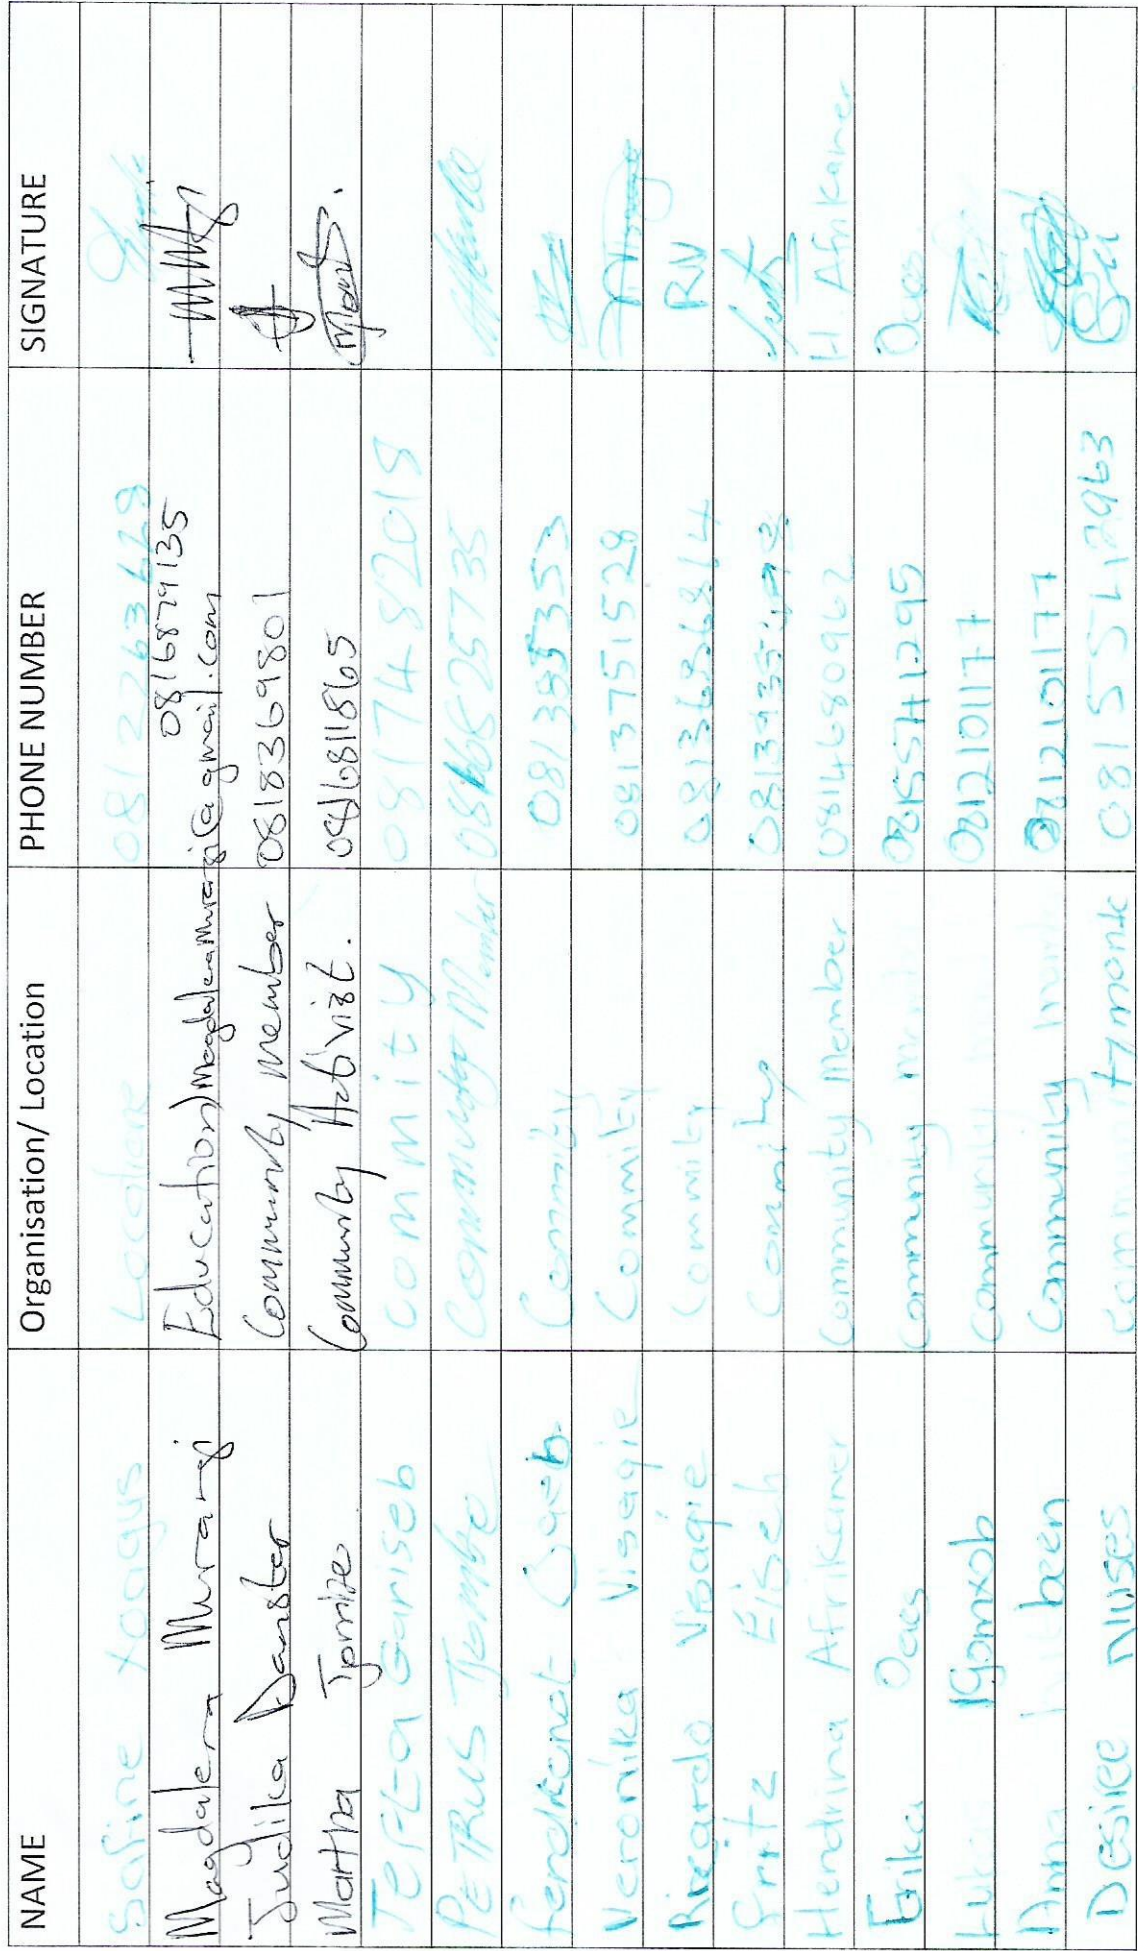 NAME Organisation/ Location PHONE NUMBER SIGNATURE
Sofine Xoagus Locatione 0812263669
Magdalena Murangi Education) magdalenamurangi@gmail.com 0816879135
Judika Danster Community member 0818369801
Martha Tjorrize Community Activist. 0816811865
TerTta Gariseb commity 0817482018
PETRUS Tjombe Community Member 0816825735
ferdinand Gaeb Commity 081385353
Veronika Visagie Community 0813751528
Riecardo Visagie Commity 0813686814 RV
Fritz Eiseh Comnity
Hendrina Afrikaner Community Member 0814680962 H. Afrikaner
Erika Oaes Community 0815541295 Oaes
!Gomxob Community 0812210117
Anna Community 0812210117
Desiree Nuses 08155712963